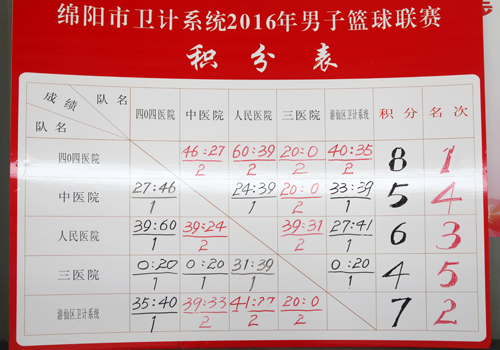 绵阳市卫计系统2016年男子篮球联赛
积分表
成绩 队名 队名 四0四医院 中医院 人民医院 三医院 游仙区卫计系统 积分 名次
四0四医院 46:27 2 60:39 2 20:0 2 40:35 2 8 1
中医院 27:46 1 24:39 1 20:0 2 33:39 1 5 4
人民医院 39:60 1 39:24 2 39:31 2 27:41 1 6 3
三医院 0:20 1 0:20 1 31:39 1 0:20 1 4 5
游仙区卫计系统 35:40 1 39:33 2 41:27 2 20:0 2 7 2